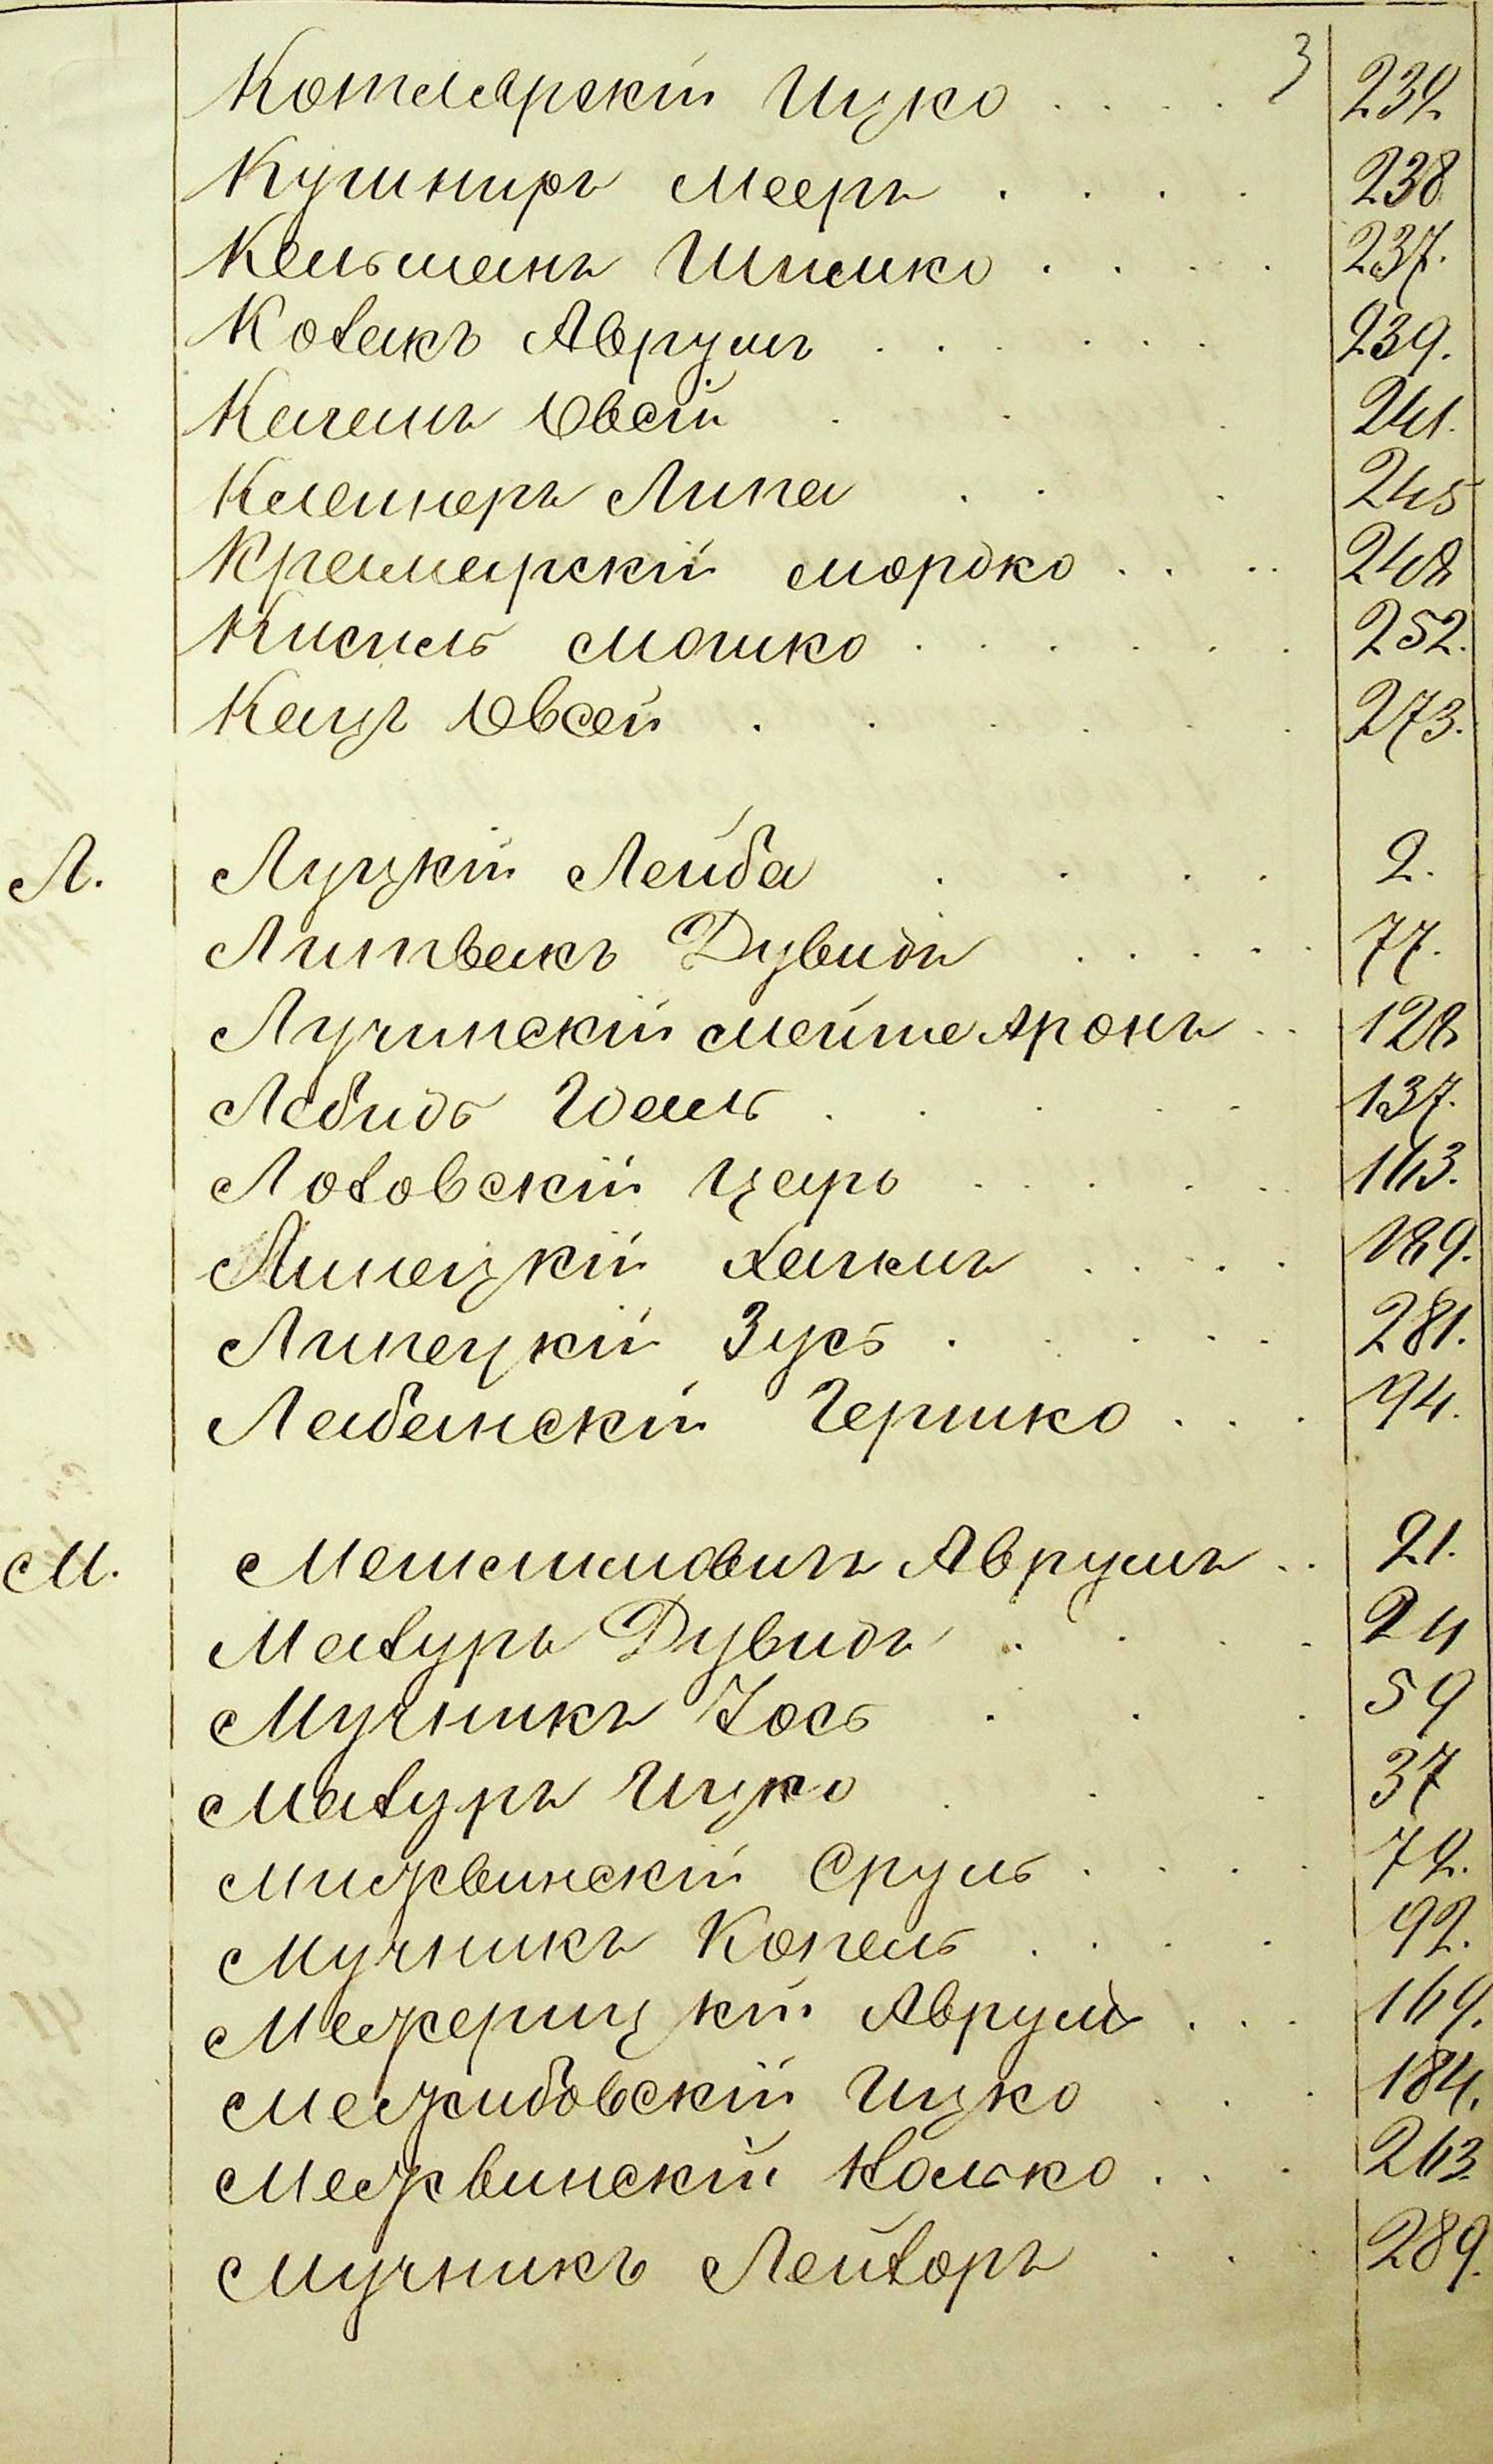 3
Котлярскій Ицко . . . . 232
Кушниръ Мееръ . . . . 238
Кельманъ Шлемко . . . . 237.
Козакъ Аврумъ . . . . . . 239.
Качанъ Овсій . . . 241.
Клейнеръ Липа . . . 245
Крамарскій Мордко . . . . 248
Кисиль Мошко . . . . . . 252.
Кацъ Овсей . . . . . . 273.
Л. Луцкій Лейба . . . . 2.
Литвакъ Дувидъ . . . . . 77.
Лучинскій Мейше Аронъ . . 128
Лебидь Идель . . . . . 137.
Лозовскій Церь . . . . . . 163.
Липецкій Хаимъ . . . . 189.
Липецкій Зусь . . . . . 281.
Лабанскій Гершко . . . 94.
М. Авр умъ . . 21.
Мазуръ Дувидъ . . . . 24
Мучникъ Іось . . . 59
Мазуръ Ицко . . . 37
Мижвинскій Сруль . . . . 72.
Мучникъ Копель . . . . 92.
Межерицкій Аврумъ . . . 169.
Межибовскій Ицко . . . 184.
Межвинскій . . . 263
Мучникъ Лейзоръ . . . 289.